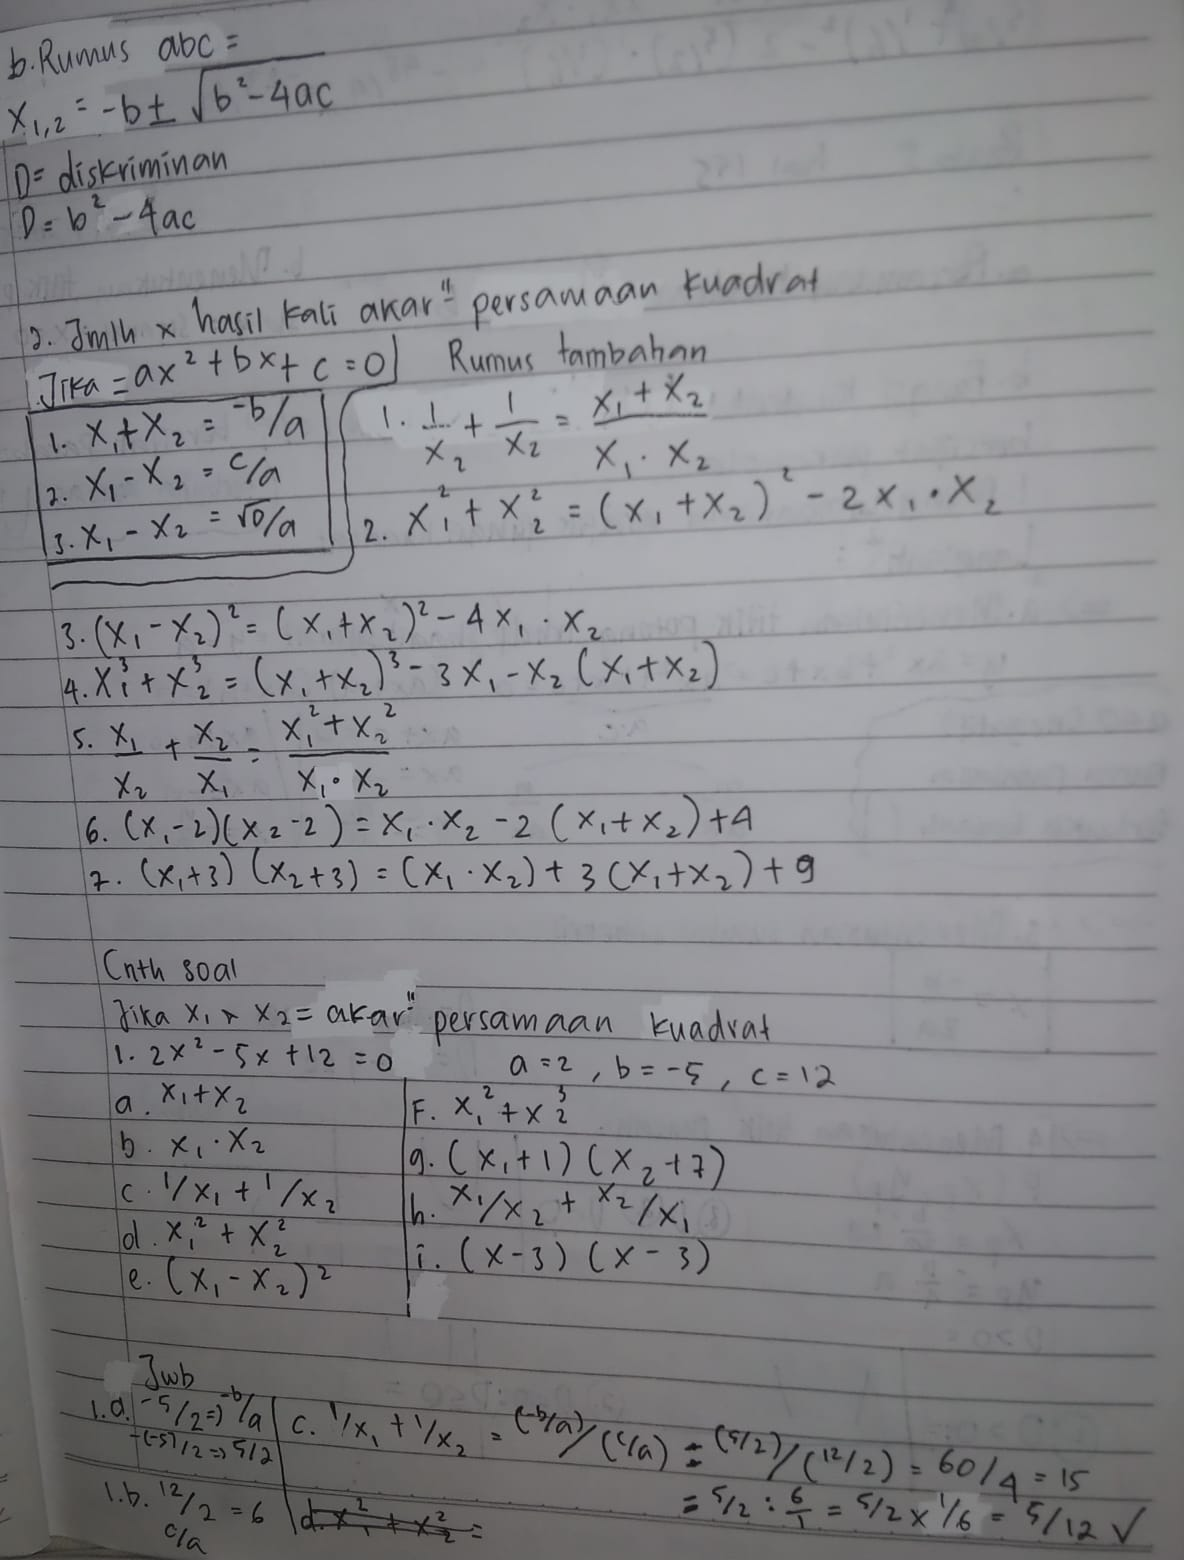 b. Rumus abc =
X₁,₂ = -b ± √b² - 4ac
D = diskriminan
D = b² - 4ac
2. Jmlh x hasil kali akar" persamaan kuadrat
Jika = ax² + bx + c = 0
1. X₁ + X₂ = -b/a
2. X₁ - X₂ = c/a
3. X₁ - X₂ = √D/a
Rumus tambahan
1. 1/X₂ + 1/X₂ = X₁ + X₂ / X₁ · X₂
2. X₁² + X₂² = (X₁ + X₂)² - 2X₁ · X₂
3. (X₁ - X₂)² = (X₁ + X₂)² - 4X₁ · X₂
4. X₁³ + X₂³ = (X₁ + X₂)³ - 3X₁ - X₂ (X₁ + X₂)
5. X₁/X₂ + X₂/X₁ = X₁² + X₂² / X₁ · X₂
6. (X₁ - 2)(X₂ - 2) = X₁ · X₂ - 2 (X₁ + X₂) + 4
7. (X₁ + 3) (X₂ + 3) = (X₁ · X₂) + 3 (X₁ + X₂) + 9
Cnth soal
Jika X₁ x X₂ = akar" persamaan kuadrat
1. 2x² - 5x + 12 = 0 a = 2 , b = -5 , c = 12
a. X₁ + X₂
b. X₁ · X₂
c. 1/X₁ + 1/X₂
d. X₁² + X₂²
e. (X₁ - X₂)²
F. X₁² + X₂³
g. (X₁ + 1) (X₂ + 7)
h. X₁/X₂ + X₂/X₁
i. (X - 3) (X - 3)
Jwb
1.a. -5/2 => -b/a
-(-5)/2 => 5/2
1.b. 12/2 = 6
c/a
c. 1/X₁ + 1/X₂ = (-b/a)/(c/a) = (5/2)/(12/2) = 60/4 = 15
= 5/2 : 6/1 = 5/2 x 1/6 = 5/12 ✓
d. X₁² + X₂² =